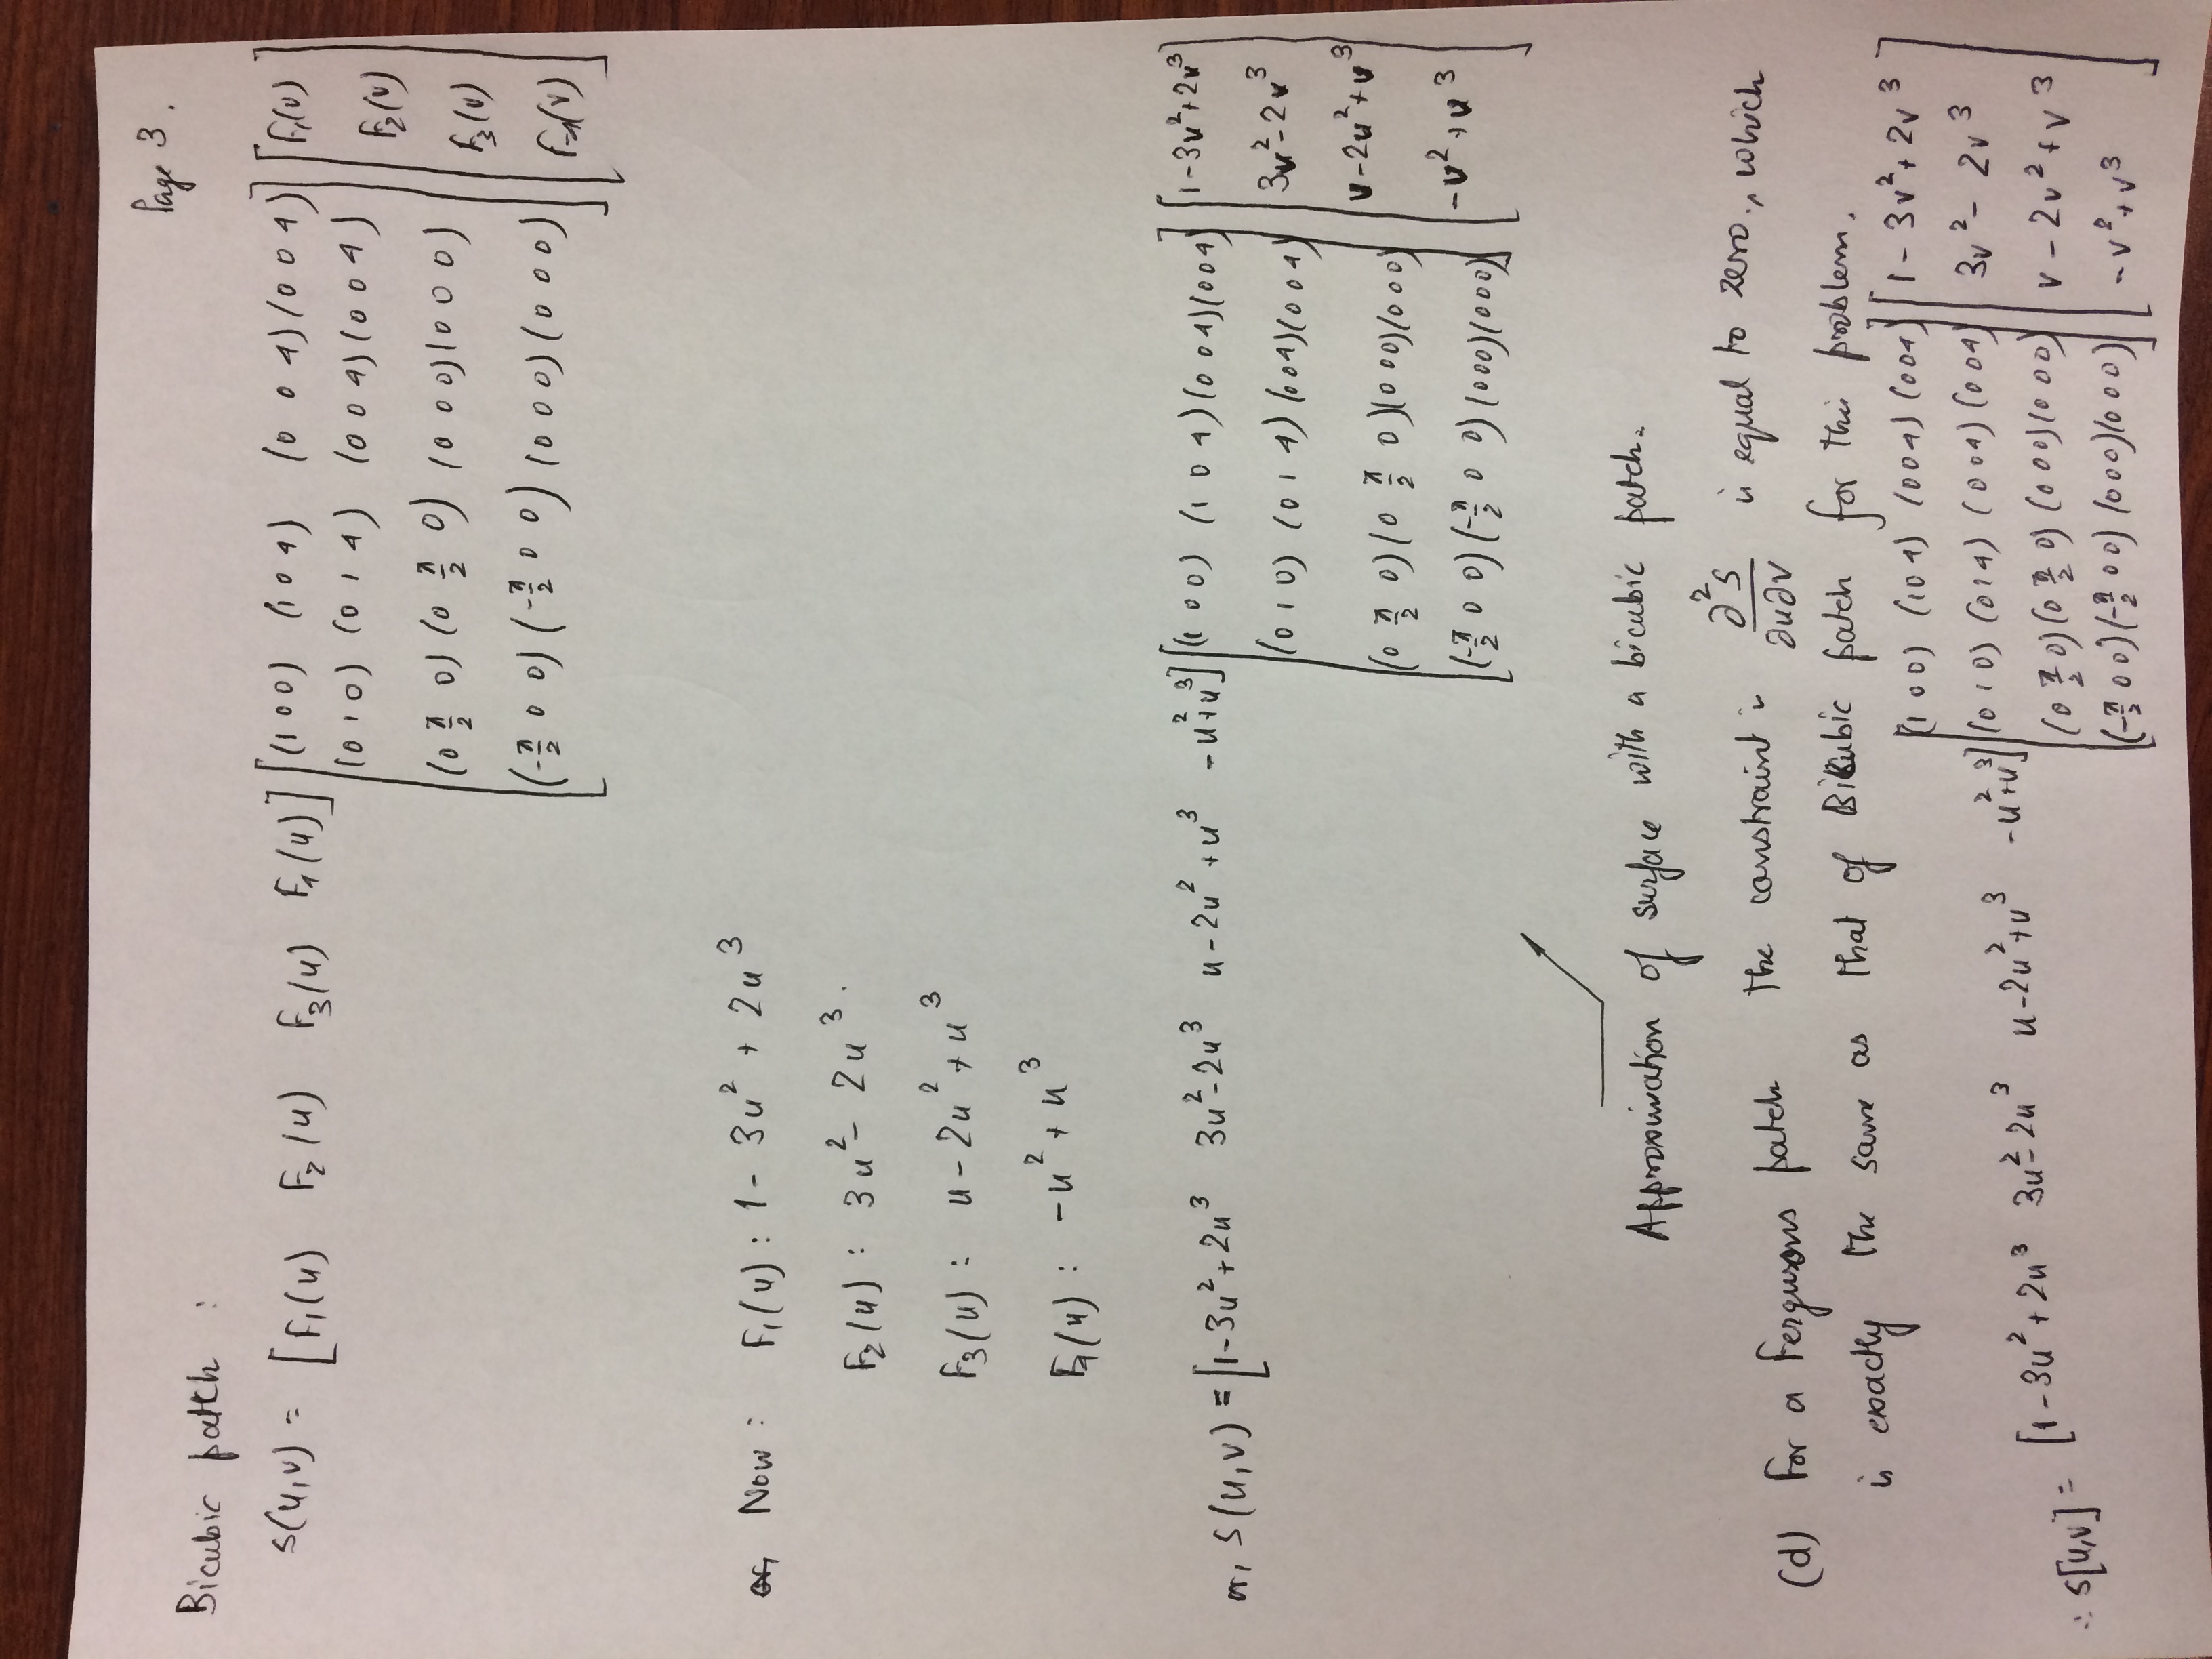 Page 3.
Bicubic patch :
S(u,v) = [F₁(u) F₂(u) F₃(u) F₄(u)] [(1 0 0) (1 0 1) (0 0 1) (0 0 1)] [F₁(v)]
(0 1 0) (0 1 1) (0 0 1) (0 0 1) F₂(v)
(0 π/2 0) (0 π/2 0) (0 0 0) (0 0 0) F₃(v)
(-π/2 0 0) (-π/2 0 0) (0 0 0) (0 0 0) F₄(v)
Now : F₁(u) : 1 - 3u² + 2u³
F₂(u) : 3u² - 2u³.
F₃(u) : u - 2u² + u³
F₄(u) : -u² + u³
or, S(u,v) = [1-3u²+2u³ 3u²-2u³ u-2u²+u³ -u²+u³] [(1 0 0) (1 0 1) (0 0 1) (0 0 1)] [1-3v²+2v³]
(0 1 0) (0 1 1) (0 0 1) (0 0 1) 3v²-2v³
(0 π/2 0) (0 π/2 0) (0 0 0) (0 0 0) v-2v²+v³
(-π/2 0 0) (-π/2 0 0) (0 0 0) (0 0 0) -v²+v³
Approximation of surface with a bicubic patch.
(d) For a Fergusons patch the constraint is ∂²S/∂u∂v is equal to zero, which
is exactly the same as that of Bicubic patch for this problem.
∴ S[u,v] = [1-3u²+2u³ 3u²-2u³ u-2u²+u³ -u²+u³] [(1 0 0) (1 0 1) (0 0 1) (0 0 1)] [1-3v²+2v³]
(0 1 0) (0 1 1) (0 0 1) (0 0 1) 3v²-2v³
(0 π/2 0) (0 π/2 0) (0 0 0) (0 0 0) v-2v²+v³
(-π/2 0 0) (-π/2 0 0) (0 0 0) (0 0 0) -v²+v³